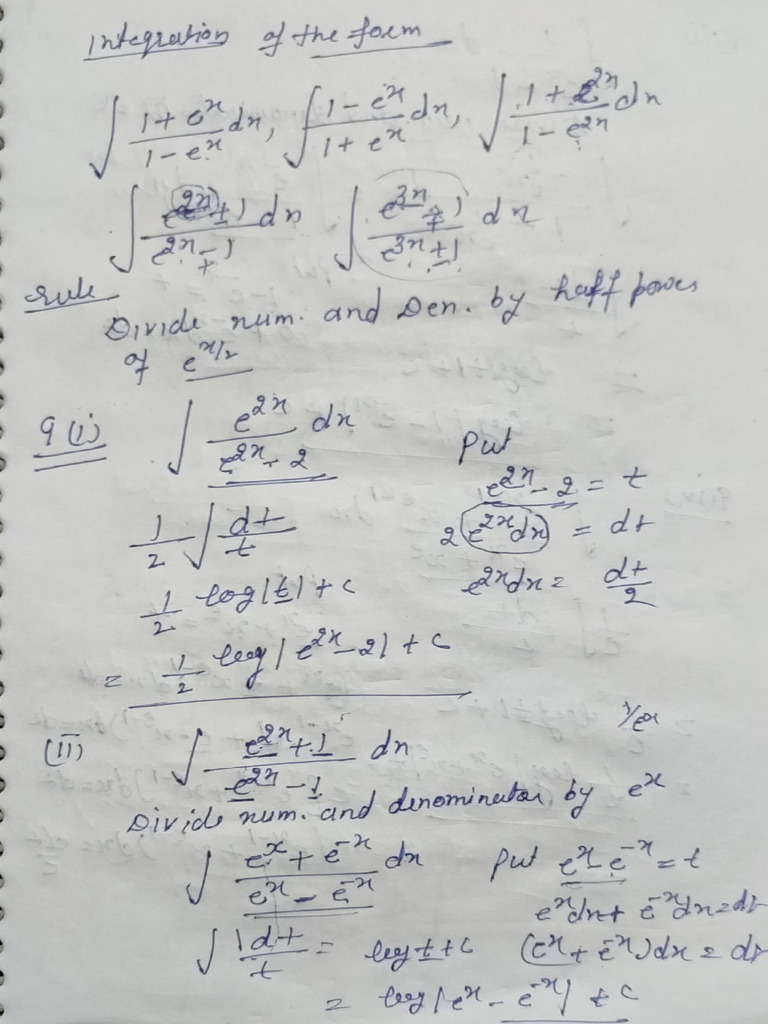 Integration of the form
∫ (1 + e^x)/(1 - e^x) dx, ∫ (1 - e^x)/(1 + e^x) dx, ∫ (1 + e^2x)/(1 - e^2x) dx
∫ (e^2x ± 1)/(e^2x ∓ 1) dx ∫ (e^3x ∓ 1)/(e^3x ± 1) dx
rule
Divide num. and Den. by half power
of e^x/2
9 (i) ∫ e^2x/(e^2x - 2) dx Put
e^2x - 2 = t
1/2 ∫ dt/t 2 e^2x dx = dt
1/2 log|t| + c e^2x dx = dt/2
= 1/2 log|e^2x - 2| + c
1/e^x
(ii) ∫ (e^2x + 1)/(e^2x - 1) dx
Divide num. and denominator by e^x
∫ (e^x + e^-x)/(e^x - e^-x) dx Put e^x - e^-x = t
e^x dx + e^-x dx = dt
∫ 1 dt/t = log t + c (e^x + e^-x) dx = dt
= log|e^x - e^-x| + c